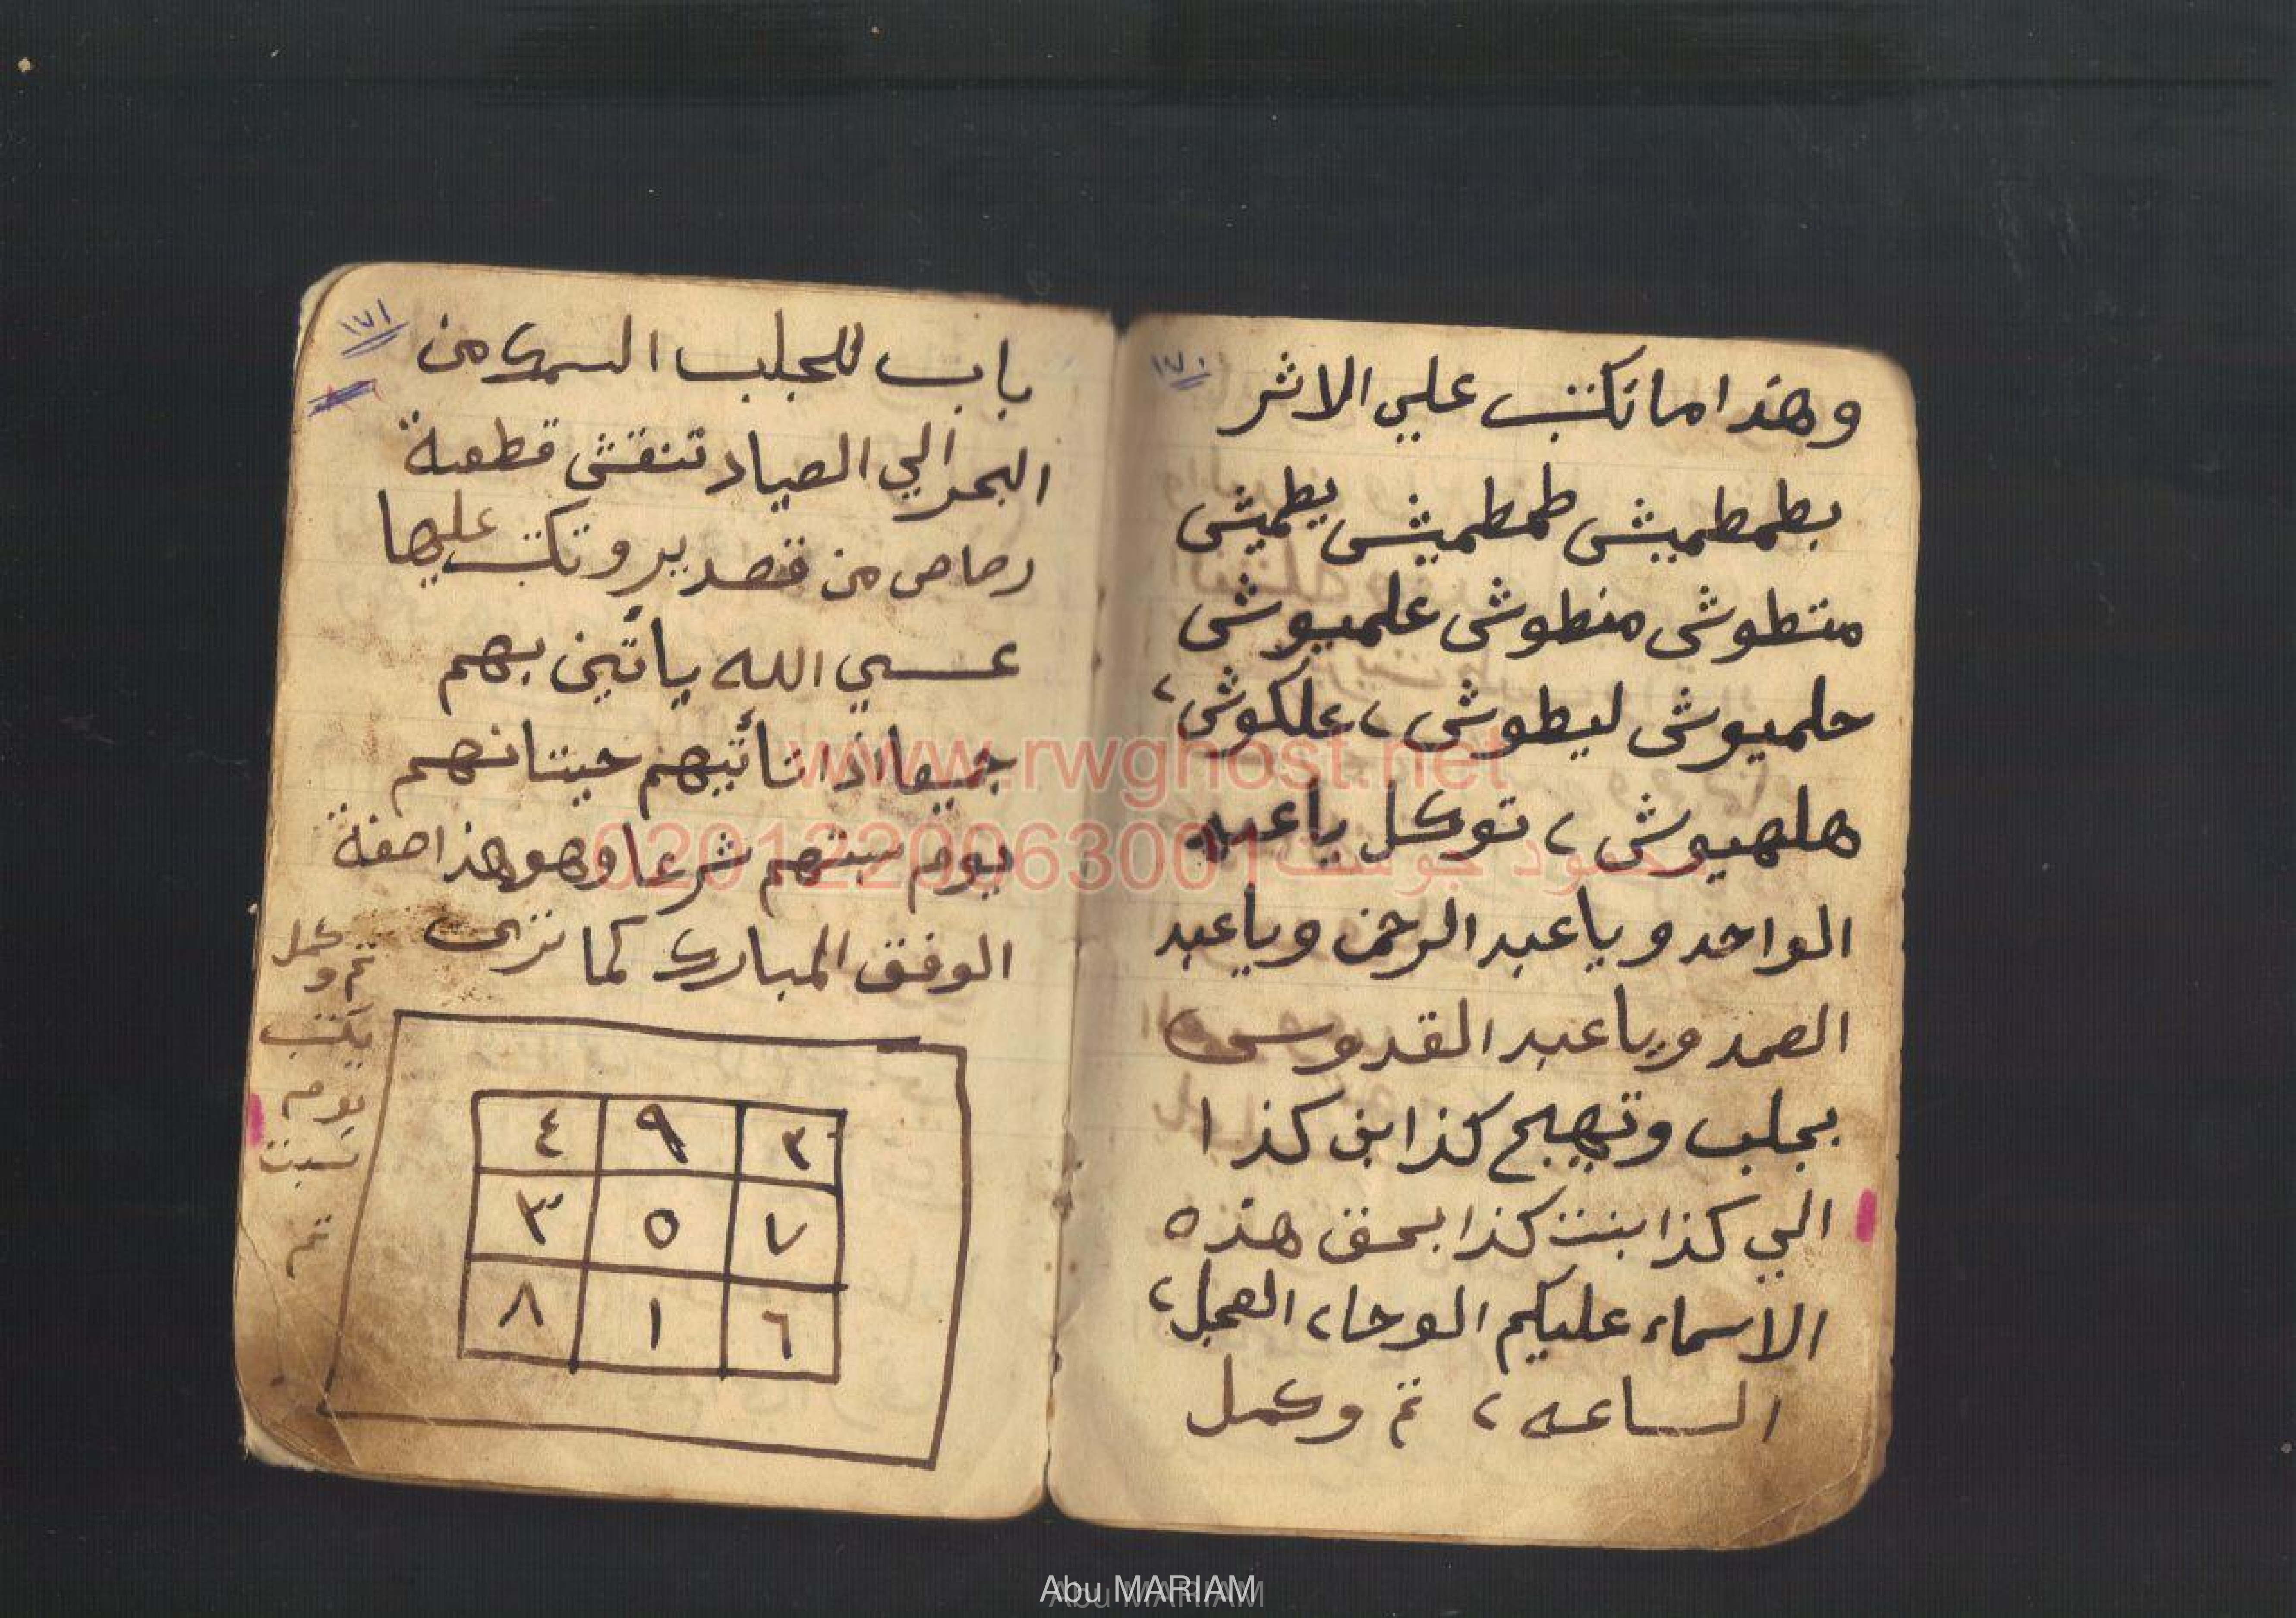 ١٧٠
وهذا ما تكتب علي الاثر
بطمطميش طمطميش يطميش
متطوش منطوش علميوش
حلميوش ليطوش، علكوش،
هلهيوش، توكل يا عبد
الواحد ويا عبد الرحمن ويا عبد
الصمد ويا عبد القدوس
بجلب وتهيج كذا ابن كذا
الي كذا بنت كذا بحق هذه
الاسماء عليكم الوحا، العجل،
الساعه، تم وكمل
١٧١
باب لجلب السمك من
البحر الي الصياد تنقش قطعة
رصاص من قصدير وتكتب عليها
عسي الله يأتين بهم
جميعا اذا تأتيهم حيتانهم
يوم سبتهم شرعا وهو هذا صفة
الوفق المبارك كما ترى
٤ ٩ ٢
٣ ٥ ٧
٨ ١ ٦
تم وكمل
يكتب
يوم
سبت
تم
www.rwghost.net
محمود جوست 0201220063001
Abu MARIAM